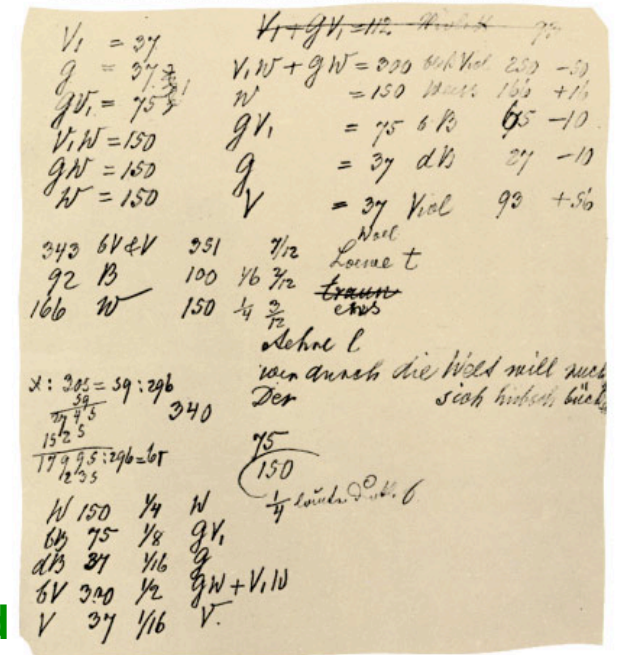 V₁ = 37
g = 37
gV₁ = 75
V₁W = 150
gW = 150
W = 150
V₁ + gV₁ = 112
V₁W + gW = 300 250 -50
W = 150 weiss 166 +16
gV₁ = 75 bB 65 -10
g = 37 dB 27 -10
V = 37 Viol 93 +56
343 bV & V 351 7/12
92 B 100 1/6 2/12
166 W 150 1/4 3/12
t
traun
Sehne l
wer durch die Welt will
Der sich hübsch
x : 305 = 59 : 296
59
340
1525
17995 : 296 =
235
75
150
1/4
W 150 1/4 W
bB 75 1/8 gV₁
dB 37 1/16 g
bV 300 1/2 gW + V₁W
V 37 1/16 V.